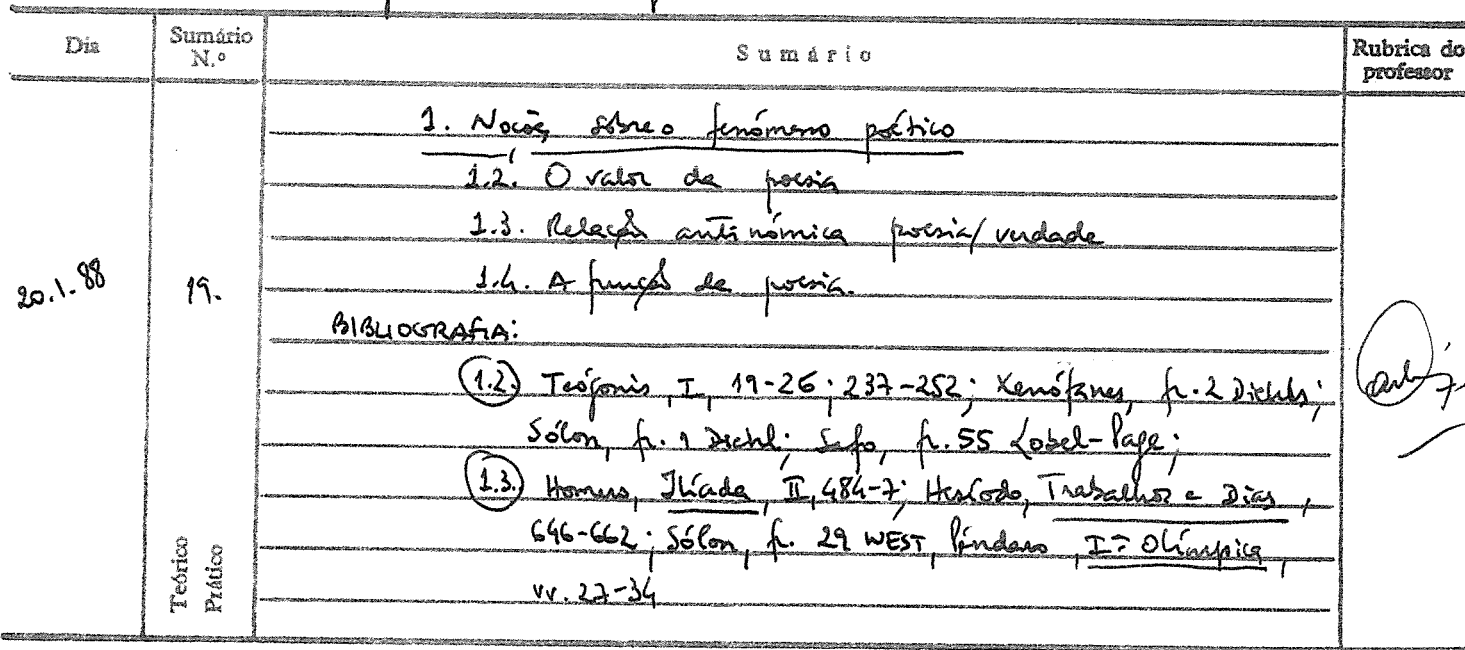 Dia
Sumário N.º
Sumário
Rubrica do professor
20.1.88
19.
Teórico
Prático
1. Noções sobre o fenómeno poético
1.2. O valor da poesia
1.3. Relação antinómica poesia/verdade
1.4. A função da poesia.
BIBLIOGRAFIA:
1.2. Teógonis, I, 19-26; 237-252; Xenófanes, fr. 2 Diehls;
Sólon, fr. 1 Diehl; Safo, fr. 55 Lobel-Page;
1.3. Homero, Ilíada, II, 484-7; Hesíodo, Trabalhos e Dias,
646-662; Sólon, fr. 29 WEST, Píndaro, Iª Olímpica,
vv. 27-34